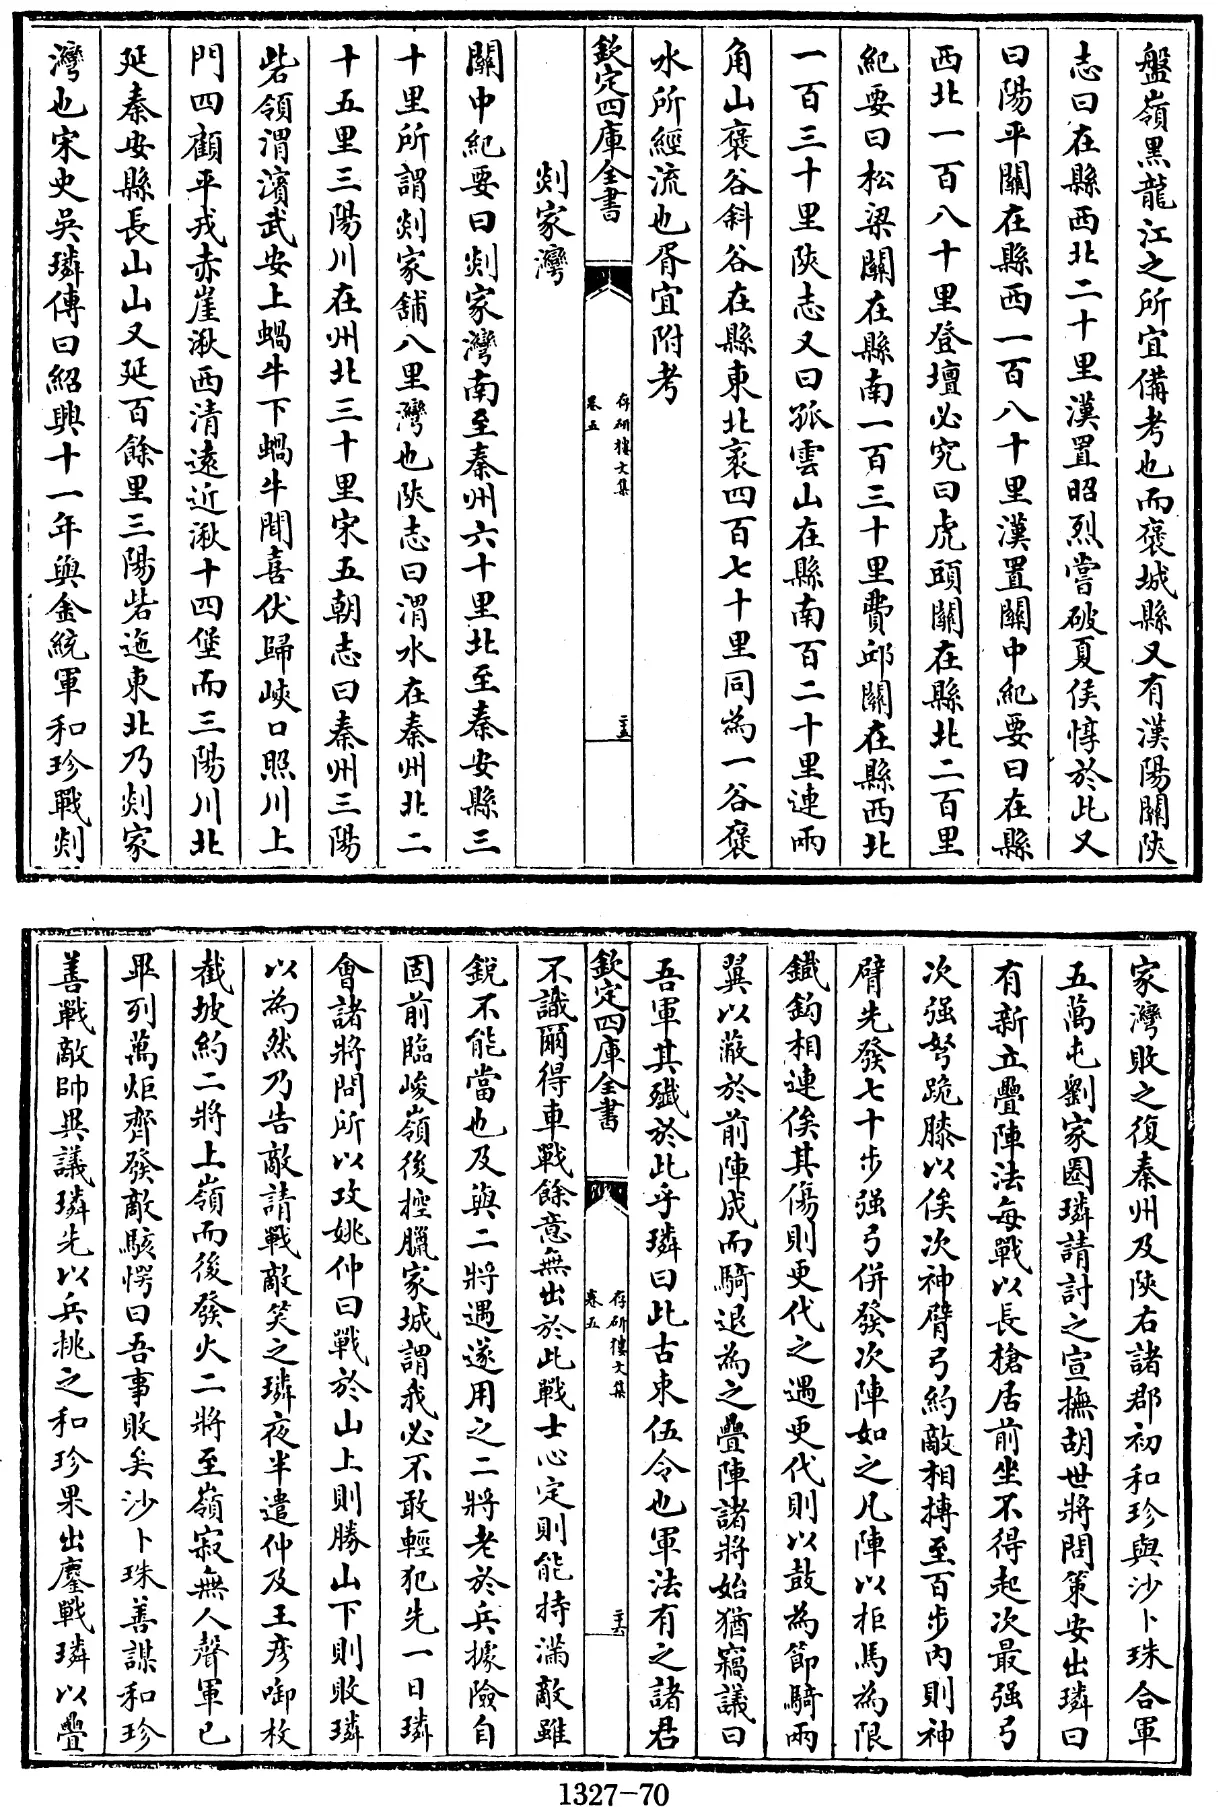 盤嶺黑龍江之所宜備考也而褒城縣又有漢陽關陜
志曰在縣西北二十里漢置昭烈嘗破夏侯惇於此又
曰陽平關在縣西一百八十里漢置關中紀要曰在縣
西北一百八十里登壇必究曰虎頭關在縣北二百里
紀要曰松梁關在縣南一百三十里費邱關在縣西北
一百三十里陜志又曰孤雲山在縣南百二十里連兩
角山褒谷斜谷在縣東北袤四百七十里同為一谷褒
水所經流也胥宜附考
欽定四庫全書
存研樓文集
卷五
二十五
剡家灣
關中紀要曰剡家灣南至秦州六十里北至秦安縣三
十里所謂剡家舖八里灣也陜志曰渭水在秦州北二
十五里三陽川在州北三十里宋五朝志曰秦州三陽
砦領渭濱武安上蝸牛下蝸牛聞喜伏歸峽口照川上
門四顧平戎赤崖湫西清遠近湫十四堡而三陽川北
延秦安縣長山山又延百餘里三陽砦迤東北乃剡家
灣也宋史吳璘傳曰紹興十一年與金統軍和珍戰剡
家灣敗之復秦州及陜右諸郡初和珍與沙卜珠合軍
五萬屯劉家圈璘請討之宣撫胡世將問策安出璘曰
有新立疊陣法每戰以長槍居前坐不得起次最强弓
次强弩跪膝以俟次神臂弓約敵相搏至百步內則神
臂先發七十步强弓併發次陣如之凡陣以拒馬為限
鐵鈎相連俟其傷則更代之遇更代則以鼓為節騎兩
翼以蔽於前陣成而騎退為之疊陣諸將始猶竊議曰
吾軍其殲於此乎璘曰此古束伍令也軍法有之諸君
欽定四庫全書
存研樓文集
卷五
二十六
不識爾得車戰餘意無出於此戰士心定則能持滿敵雖
銳不能當也及與二將遇遂用之二將老於兵據險自
固前臨峻嶺後控臘家城謂我必不敢輕犯先一日璘
會諸將問所以攻姚仲曰戰於山上則勝山下則敗璘
以為然乃告敵請戰敵笑之璘夜半遣仲及王彥啣枚
截坡約二將上嶺而後發火二將至嶺寂無人聲軍已
畢列萬炬齊發敵駭愕曰吾事敗矣沙卜珠善謀和珍
善戰敵帥異議璘先以兵挑之和珍果出鏖戰璘以疊
1327-70